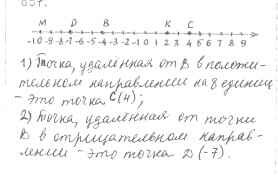 M D B K C
-10 -9 -8 -7 -6 -5 -4 -3 -2 -1 0 1 2 3 4 5 6 7 8 9
1) Точка, удаленная от B в положи-
тельном направлении на 8 единиц
- это точка C(4);
2) Точка, удаленная от точки
B в отрицательном направ-
лении - это точка D (-7).